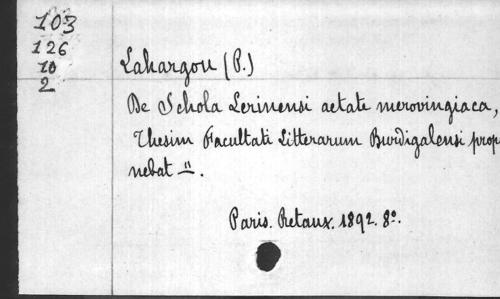 103
126
10
2
Lahargou (P.)
De Schola Lerinensi aetate merovingiaca,
Thesim Facultati Litterarum Burdigalensi prop
nebat =.
Paris. Retaux. 1892. 8º.